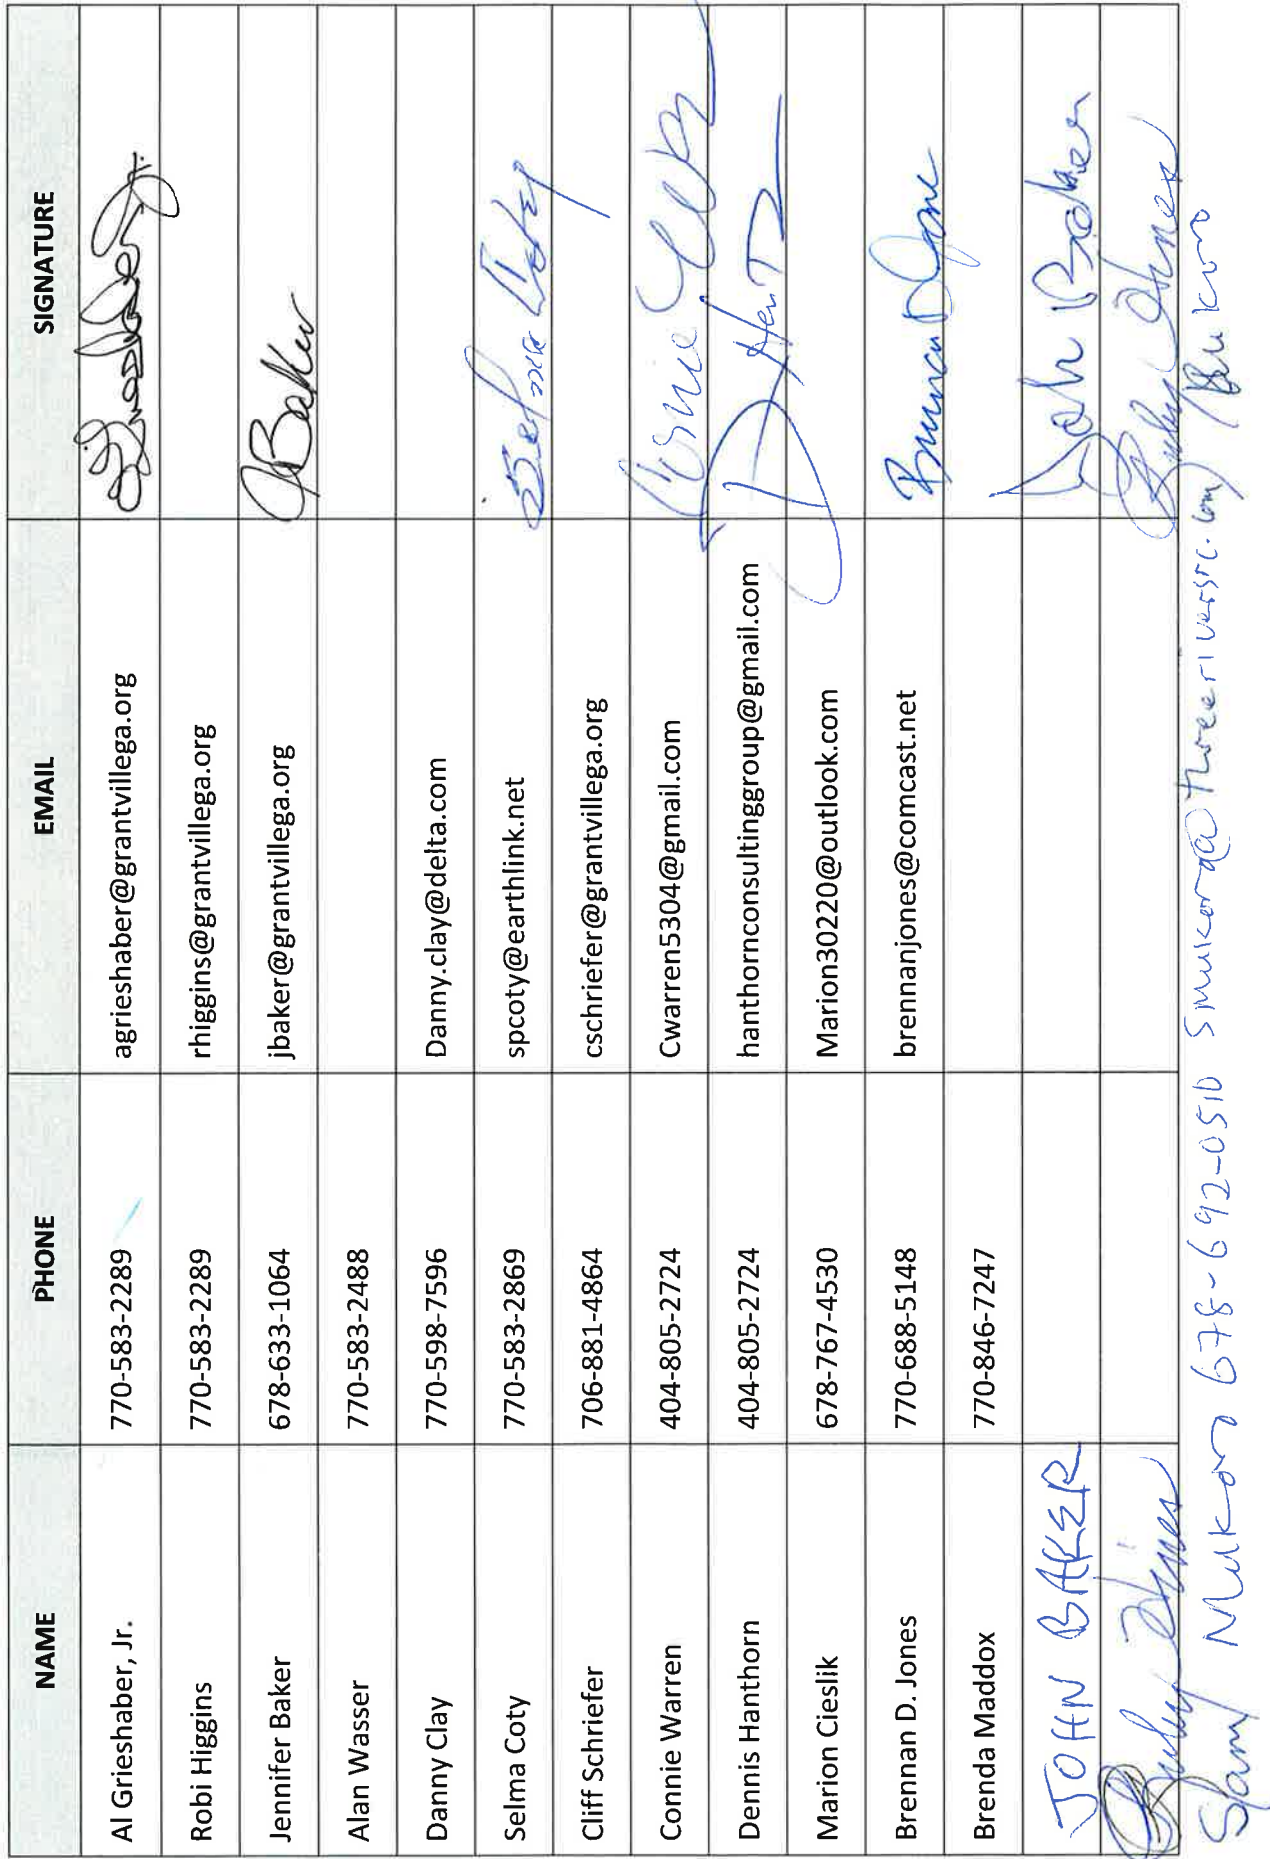 NAME PHONE EMAIL SIGNATURE
Al Grieshaber, Jr. 770-583-2289 agrieshaber@grantvillega.org
Robi Higgins 770-583-2289 rhiggins@grantvillega.org
Jennifer Baker 678-633-1064 jbaker@grantvillega.org JBaker
Alan Wasser 770-583-2488
Danny Clay 770-598-7596 Danny.clay@delta.com
Selma Coty 770-583-2869 spcoty@earthlink.net Selma Coty
Cliff Schriefer 706-881-4864 cschriefer@grantvillega.org
Connie Warren 404-805-2724 Cwarren5304@gmail.com
Dennis Hanthorn 404-805-2724 hanthornconsultinggroup@gmail.com
Marion Cieslik 678-767-4530 Marion30220@outlook.com
Brennan D. Jones 770-688-5148 brennanjones@comcast.net Brennan D Jones
Brenda Maddox 770-846-7247
JOHN BAKER John Baker
Ruby Hines Ruby Hines
678-692-0510